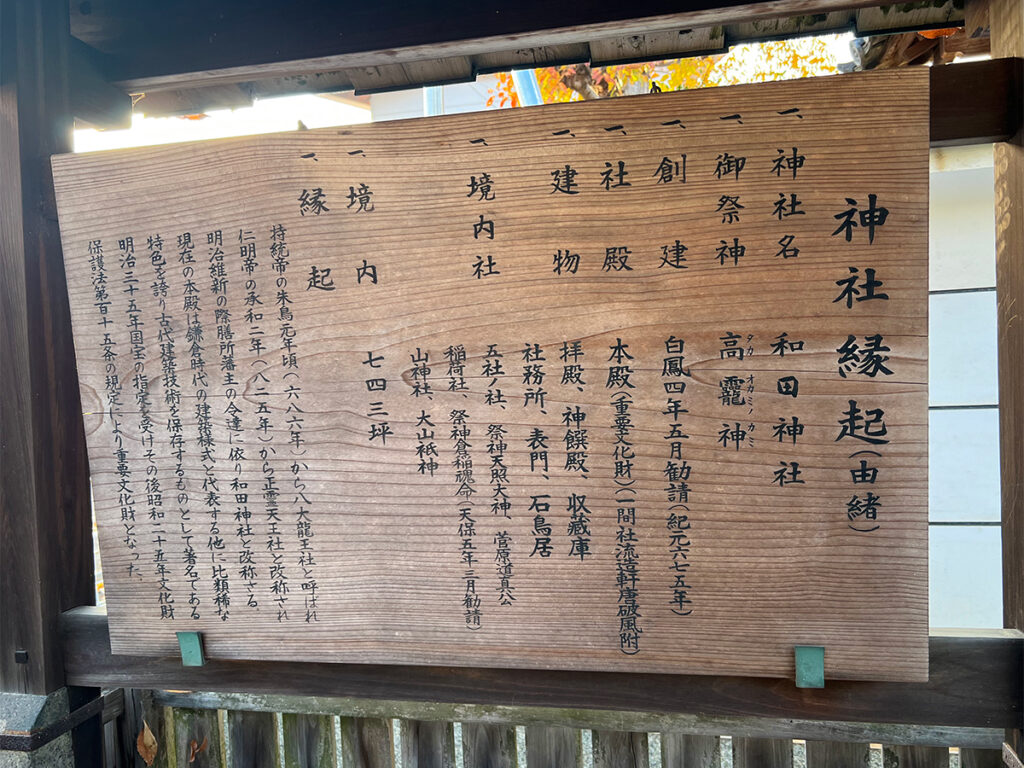 神社縁起(由緒)
一、神社名 和田神社
一、御祭神 高龗神
タカオカミノカミ
一、創建 白鳳四年五月勧請(紀元六七五年)
一、社殿 本殿(重要文化財)(一間社流造軒唐破風附)
一、建物 拝殿、神饌殿、収蔵庫
社務所、表門、石鳥居
一、境内社 五社ノ社、祭神天照大神、菅原道真公
稲荷社、祭神倉稲魂命(天保五年三月勧請)
山神社、大山祇神
一、境内 七四三坪
一、縁起
持統帝の朱鳥元年頃、(六八六年)から八大龍王社と呼ばれ
仁明帝の承和二年(八二五年)から正霊天王社と改称され
明治維新の際膳所藩主の令達に依り和田神社と改称さる、
現在の本殿は鎌倉時代の建築様式と代表する他に比類稀な
特色を誇り古代建築技術を保存するものとして著名である
明治三十五年国宝の指定を受けその後昭和二十五年文化財
保護法第百十五条の規定により重要文化財となった、